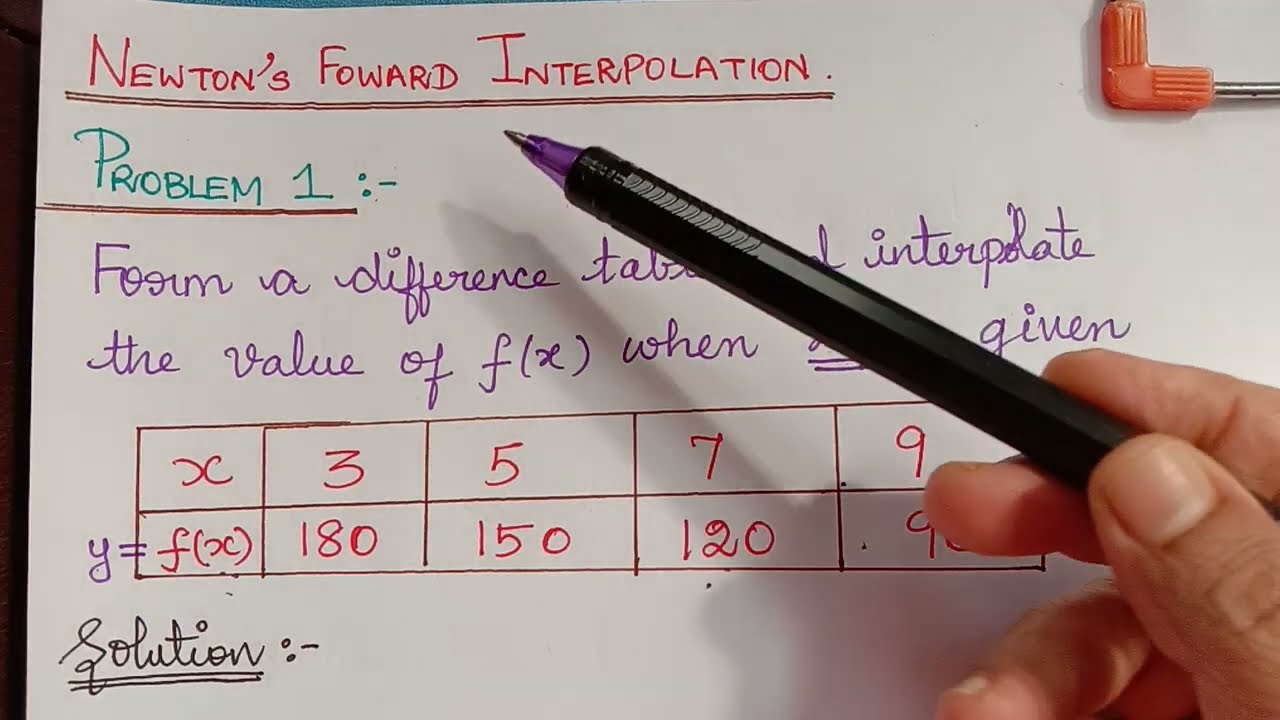 NEWTON'S FOWARD INTERPOLATION.
PROBLEM 1 :-
Form a difference interpolate
the value of f(x) when given
x 3 5 7 9
y= f(x) 180 150 120
Solution :-